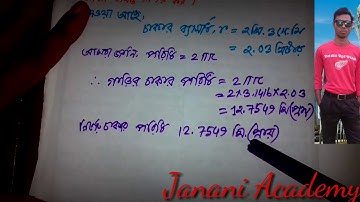 দেওয়া আছে,
চাকার ব্যাসার্ধ, r = 2 মি. 3 সে.মি
= 2.03 মিটার
আমরা জানি, পরিধি = 2πr
∴ গাড়ির চাকার পরিধি = 2πr
= 2×3.1416×2.03
= 12.7549 মি.(প্রায়)
নির্ণেয় চাকার পরিধি 12.7549 মি.(প্রায়)
Janani Academy